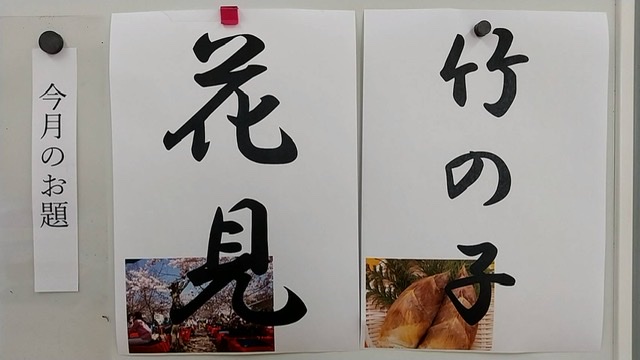 竹の子
花見
今月のお題